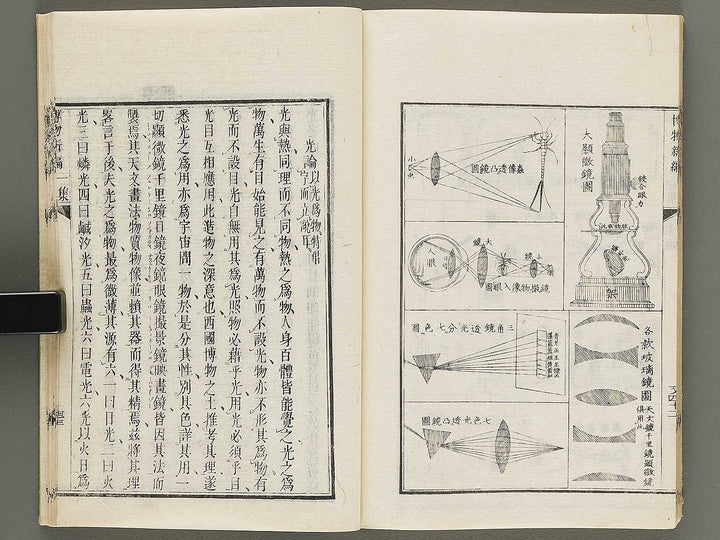 博物新編
大顯微鏡圖
接合眼力
架
各款玻璃鏡圖
天文鏡千里鏡顯微鏡
俱用
蟲像透凸鏡圖
眼
大
鏡
小
鏡撮物像入眼圖
三角鏡透光分七色圖
七色光透凸鏡圖
光論
光與熱同理而不同物熱之爲物人身百體皆能覺之光之爲
物萬生有目始能見之有萬物而不設光物亦不形其爲物有
光而不設目光自無用其爲光照物必藉乎光用光必須乎目
光目互相應用此造物之深意也西國博物之士推考其理遂
悉光之爲用亦爲宇宙間一物於是分其性別其色詳其用一
切顯微鏡千里鏡目鏡夜鏡眼鏡撮景鏡映畫鏡皆因其法而
製焉其天文畫法物質物像並賴其器而得其精焉茲將其理
畧言于後夫光之爲物最爲微薄其源有六一曰日光二曰火
光三曰燐光四曰鹹汐光五曰蟲光六曰電光六光以火日爲
博物新編
一集